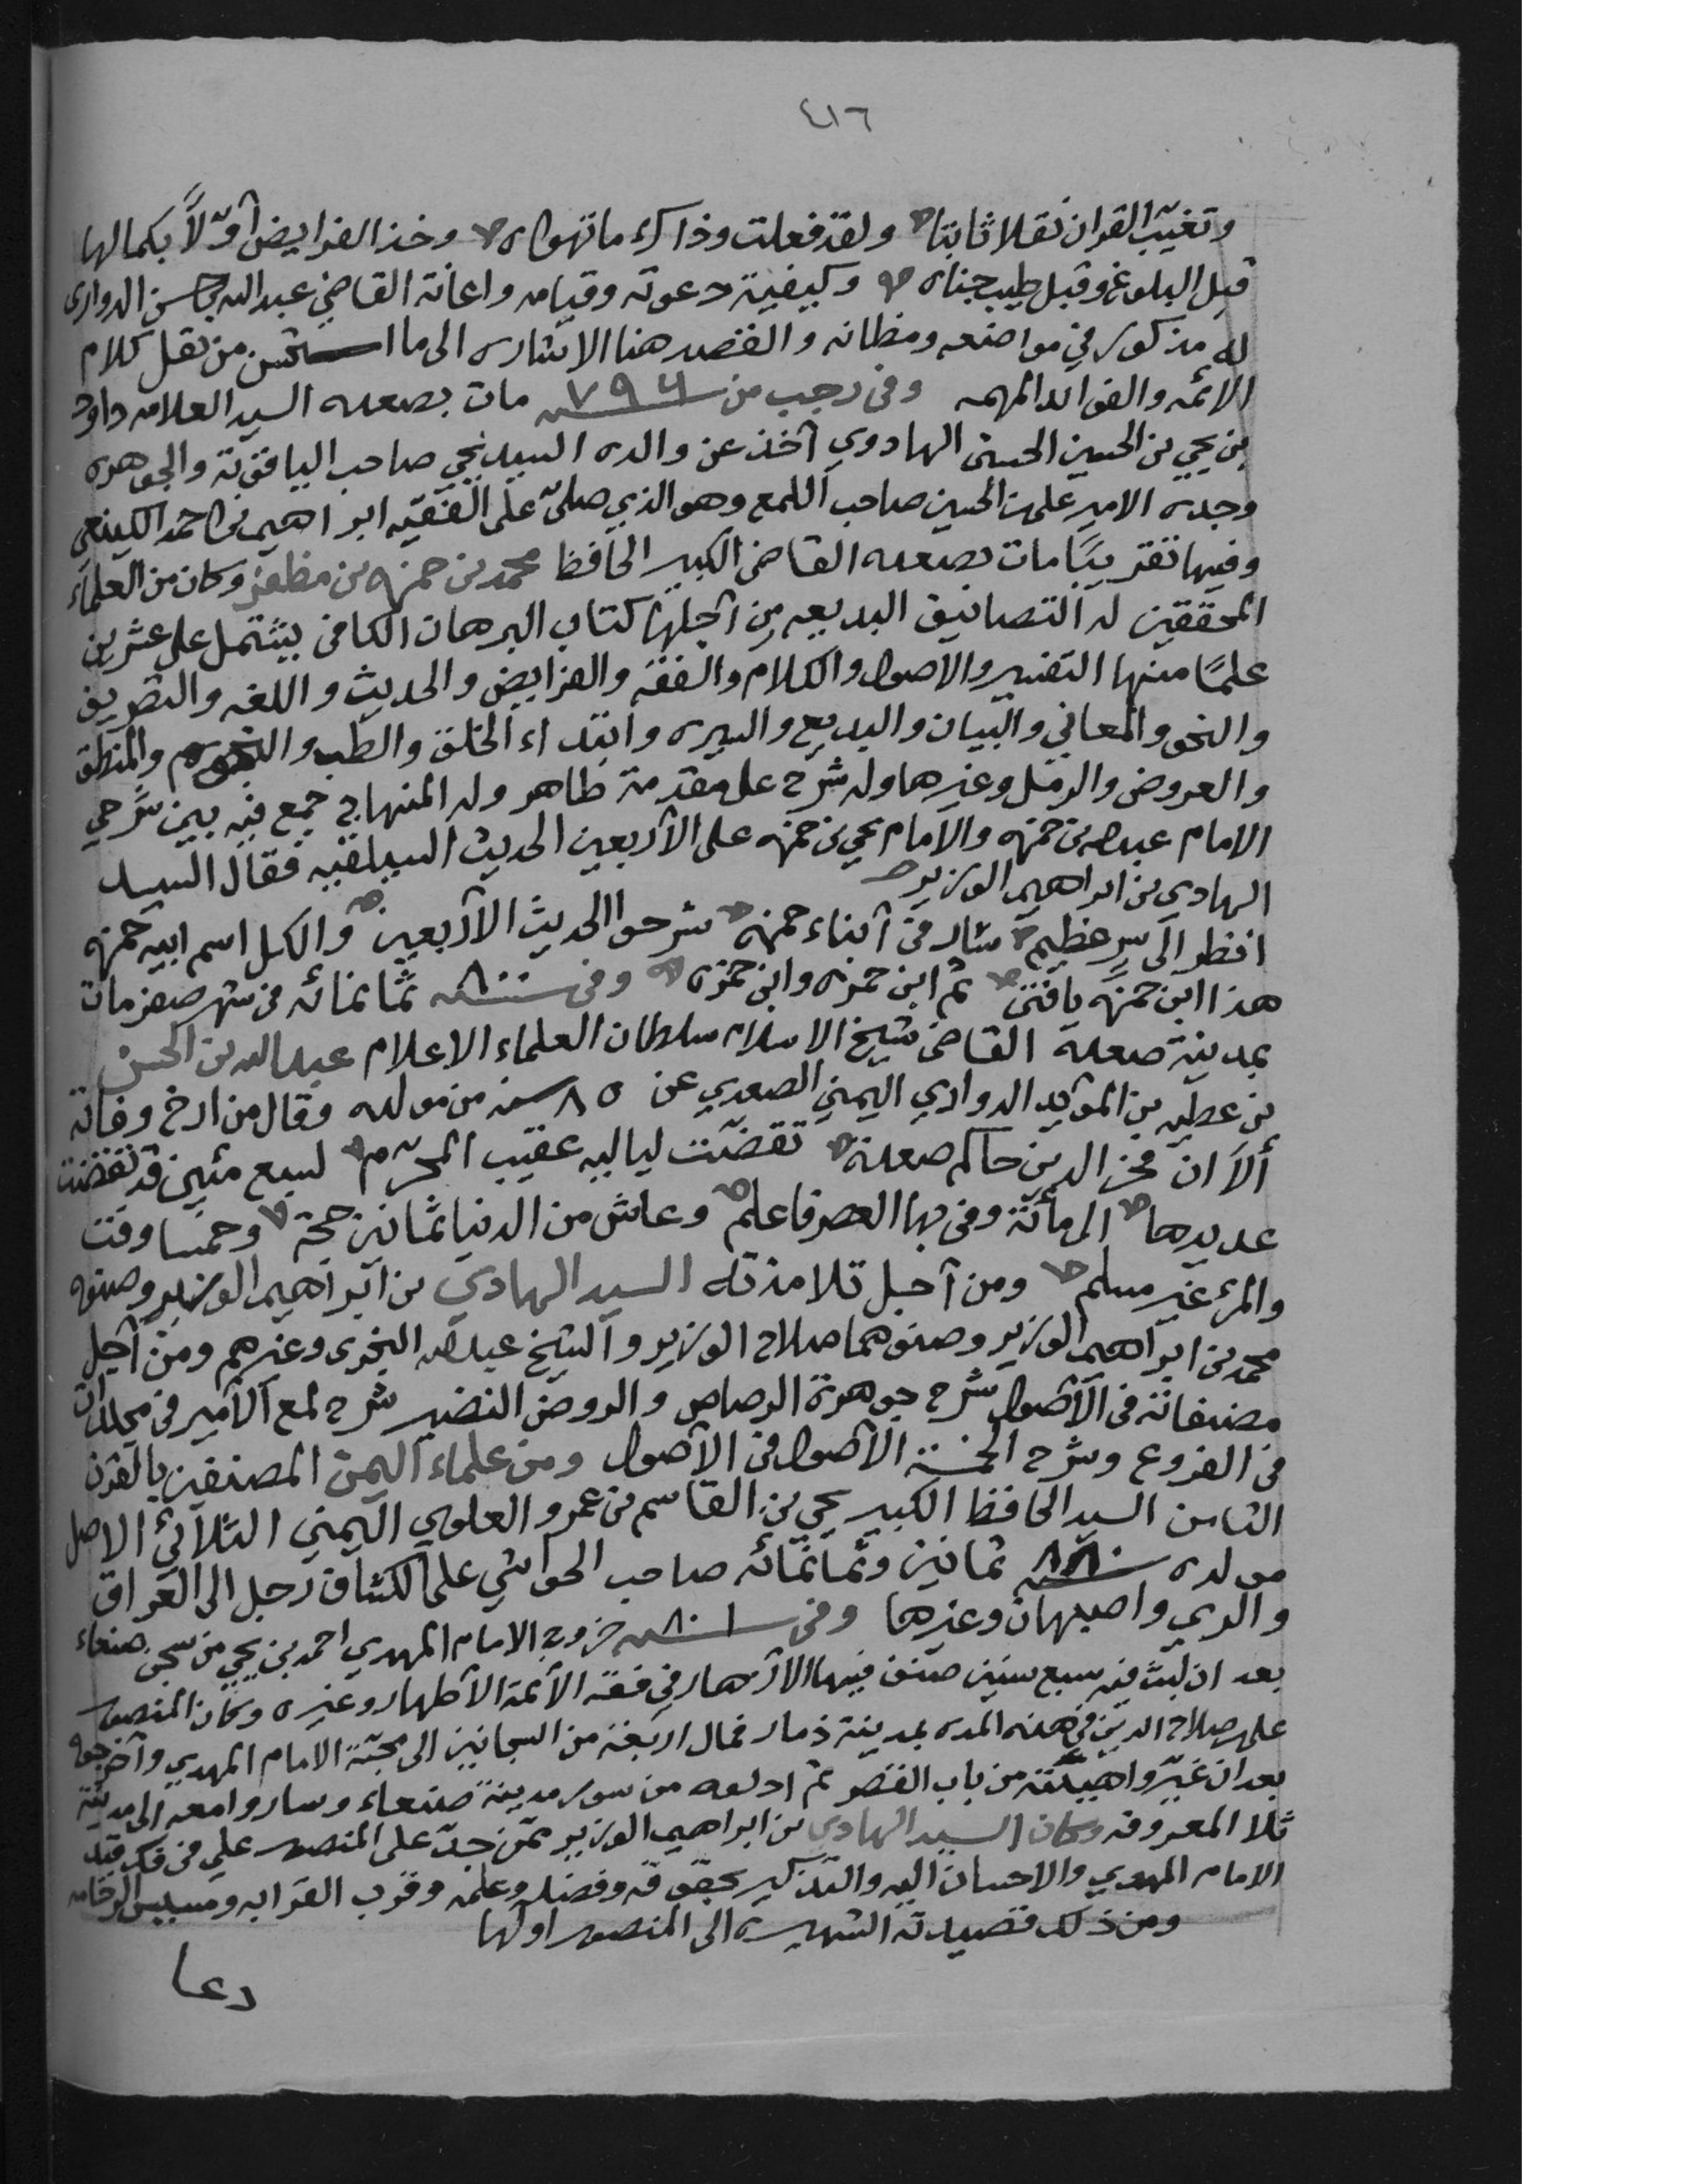 ٤١٦
وتغيّب القران نقلا ثابتا ولقد فعلت وذاك ما تهواه وخذ الفرايض أوّلاً بكمالها
قبل البلوغ وقبل طيب جناه وكيفية دعوته وقيامه واعانة القاضي عبدالله بن حسن الدواري
له مذكور في مواضعه ومظانه والقصد هنا الاشاره الى ما استحسن من نقل كلام
الائمه والفوائد المهمه وفي رجب من سنة ٧٩٦ مات بصعده السيد العلامه داود
بن يحيى بن الحسين الحسني الهادوي أخذ عن والده السيد يحيى صاحب الياقوتة والجوهره
وجده الامير علي بن الحسين صاحب اللمع وهو الذي صلىّ على الفقيه ابراهيم بن احمد الكينعي
وفيها تقريبًا مات بصعده القاضي الكبير الحافظ محمد بن حمزه بن مظفر وكان من العلماء
المحققين له التصانيف البديعه من أجلها كتاب البرهان الكافي يشتمل على عشرين
علمًا منها التفسير والاصول والكلام والفقه والفرايض والحديث واللغه والتصريف
والنحو والمعاني والبيان والبديع والسيره وابتداء الخلق والطب والنجوم والمنطق
والعروض والرمل وغيرها وله شرح على مقدمة طاهر وله المنهاج جمع فيه بين شرحي
الامام عبدالله بن حمزه والامام يحيى بن حمزه على الأربعين الحديث السيلقيه فقال السيد
الهادي بن ابراهيم الوزير
انظر الى سر عظيم سار في أبناء حمزه شرحوا الحديث الأربعين والكل اسم ابيه حمزه
هذا ابن حمزه يافتى ثم ابن حمزه وابن حمزه وفي سنة ٨٠٠ ثمانمائه في شهر صفر مات
بمدينة صعدة القاضي شيخ الاسلام سلطان العلماء الاعلام عبدالله بن الحسن
بن عطيه بن المؤيد الدواري اليمني الصعدي عن ٨٥ سنه من مولده وقال من ارخ وفاته
ألا ان فخر الدين حاكم صعدة تقضّت لياليه عقيب المحرّم لسبع مئين قد تقضت
عديدها الى مائة وفى بها العصر فاعلم وعاش من الدنيا ثمانين حجة وخمسا وفت
والمرء غير مسلم ومن أجل تلامذته السيد الهادي بن ابراهيم الوزير وصنوه
محمد بن ابراهيم الوزير وصنوهما صلاح الوزير والشيخ عبدالله النجري وغيرهم ومن أجل
مصنفاته في الأصول شرح جوهرة الرصاص والروض النضير شرح لمع الأمير في مجلدات
في الفروع وشرح الخمسة الأصول في الأصول ومن علماء اليمن المصنفين بالقرن
الثامن السيد الحافظ الكبير يحيى بن القاسم بن عمرو العلوي اليمني الثلائي الاصل
مولده سنة ٨٨٠ ثمانين وثمانمائه صاحب الحواشي على الكشاف رحل الى العراق
والري واصبهان وغيرها وفي سنة ٨٠١ خروج الامام المهدي احمد بن يحيى من سجن صنعاء
بعد ان لبث فيه سبع سنين صنف فيها الازهار في فقه الأئمة الأطهار وغيره وكان المنصور
علي بن صلاح الدين في هذه المده بمدينة ذمار فمال اربعة من السجانين الى محبّة الامام المهدي وأخرجوه
بعد ان غيّروا هيئته من باب القصر ثم ادلوه من سور مدينة صنعاء وساروا معه الى مدينة
ثلا المعروفه وكان السيد الهادي بن ابراهيم الوزير ممّن جدّ على المنصور علي في فك قيد
الامام المهدي والاحسان اليه والتذكير بحقوقه وفضله وعلمه وقرب القرابه ومسيس الرحامه
ومن ذلك قصيدته الشهيره الى المنصور اولها
دعا